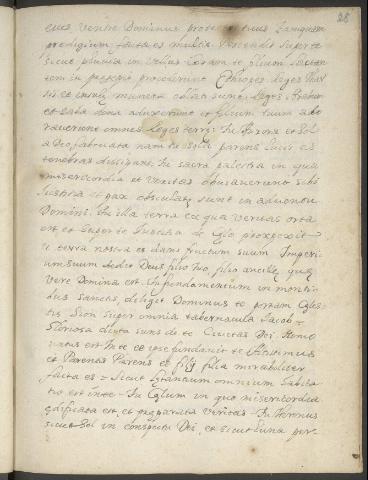 28
eius, venite Dominus protector tuus tamquam
prodigium facta es multis descendit super te
sicut pluvia in vellus coram te filium
tem in procederunt Ethiopes Reges Thar
sis et insulę munera obtulerunt Reges Arabum
et Saba dona adduxerunt et filium tuum ado
raverunt omnes Reges terrę Tu Aurora et Sol
a Deo fabricata nam tu es parens lucis es
tenebras dissipans Tu sacra palestra in qua
misericordia et veritas obviaverunt sibi
Iustitia et pax osculatę sunt in adventu
Domini. Tu illa terra ex qua veritas orta
est et super te Iustitia de Cęlo prospexit
Tu terra nostra es dans fructum suum Imperi
um suum dedit Deus filio tuo, filio ancillę quę
vere Domina est. In fundamentum in monti
bus sanctis, diliget Dominus te portam Cęles
tis Sion super omnia tabernacula Iacob
Gloriosa dicta sunt de te Civitas Dei. Homo
natus est in te et ipse fundavit te Altissimus
et Parens Parens et filij filia mirabiliter
facta es Sicut lętantium omnium habita
tio est in te Tu Cęlum in quo misericordia
ędificata est, et pręparata veritas Tu thronus
sicut Sol in conspectu Dei, et sicut Luna per